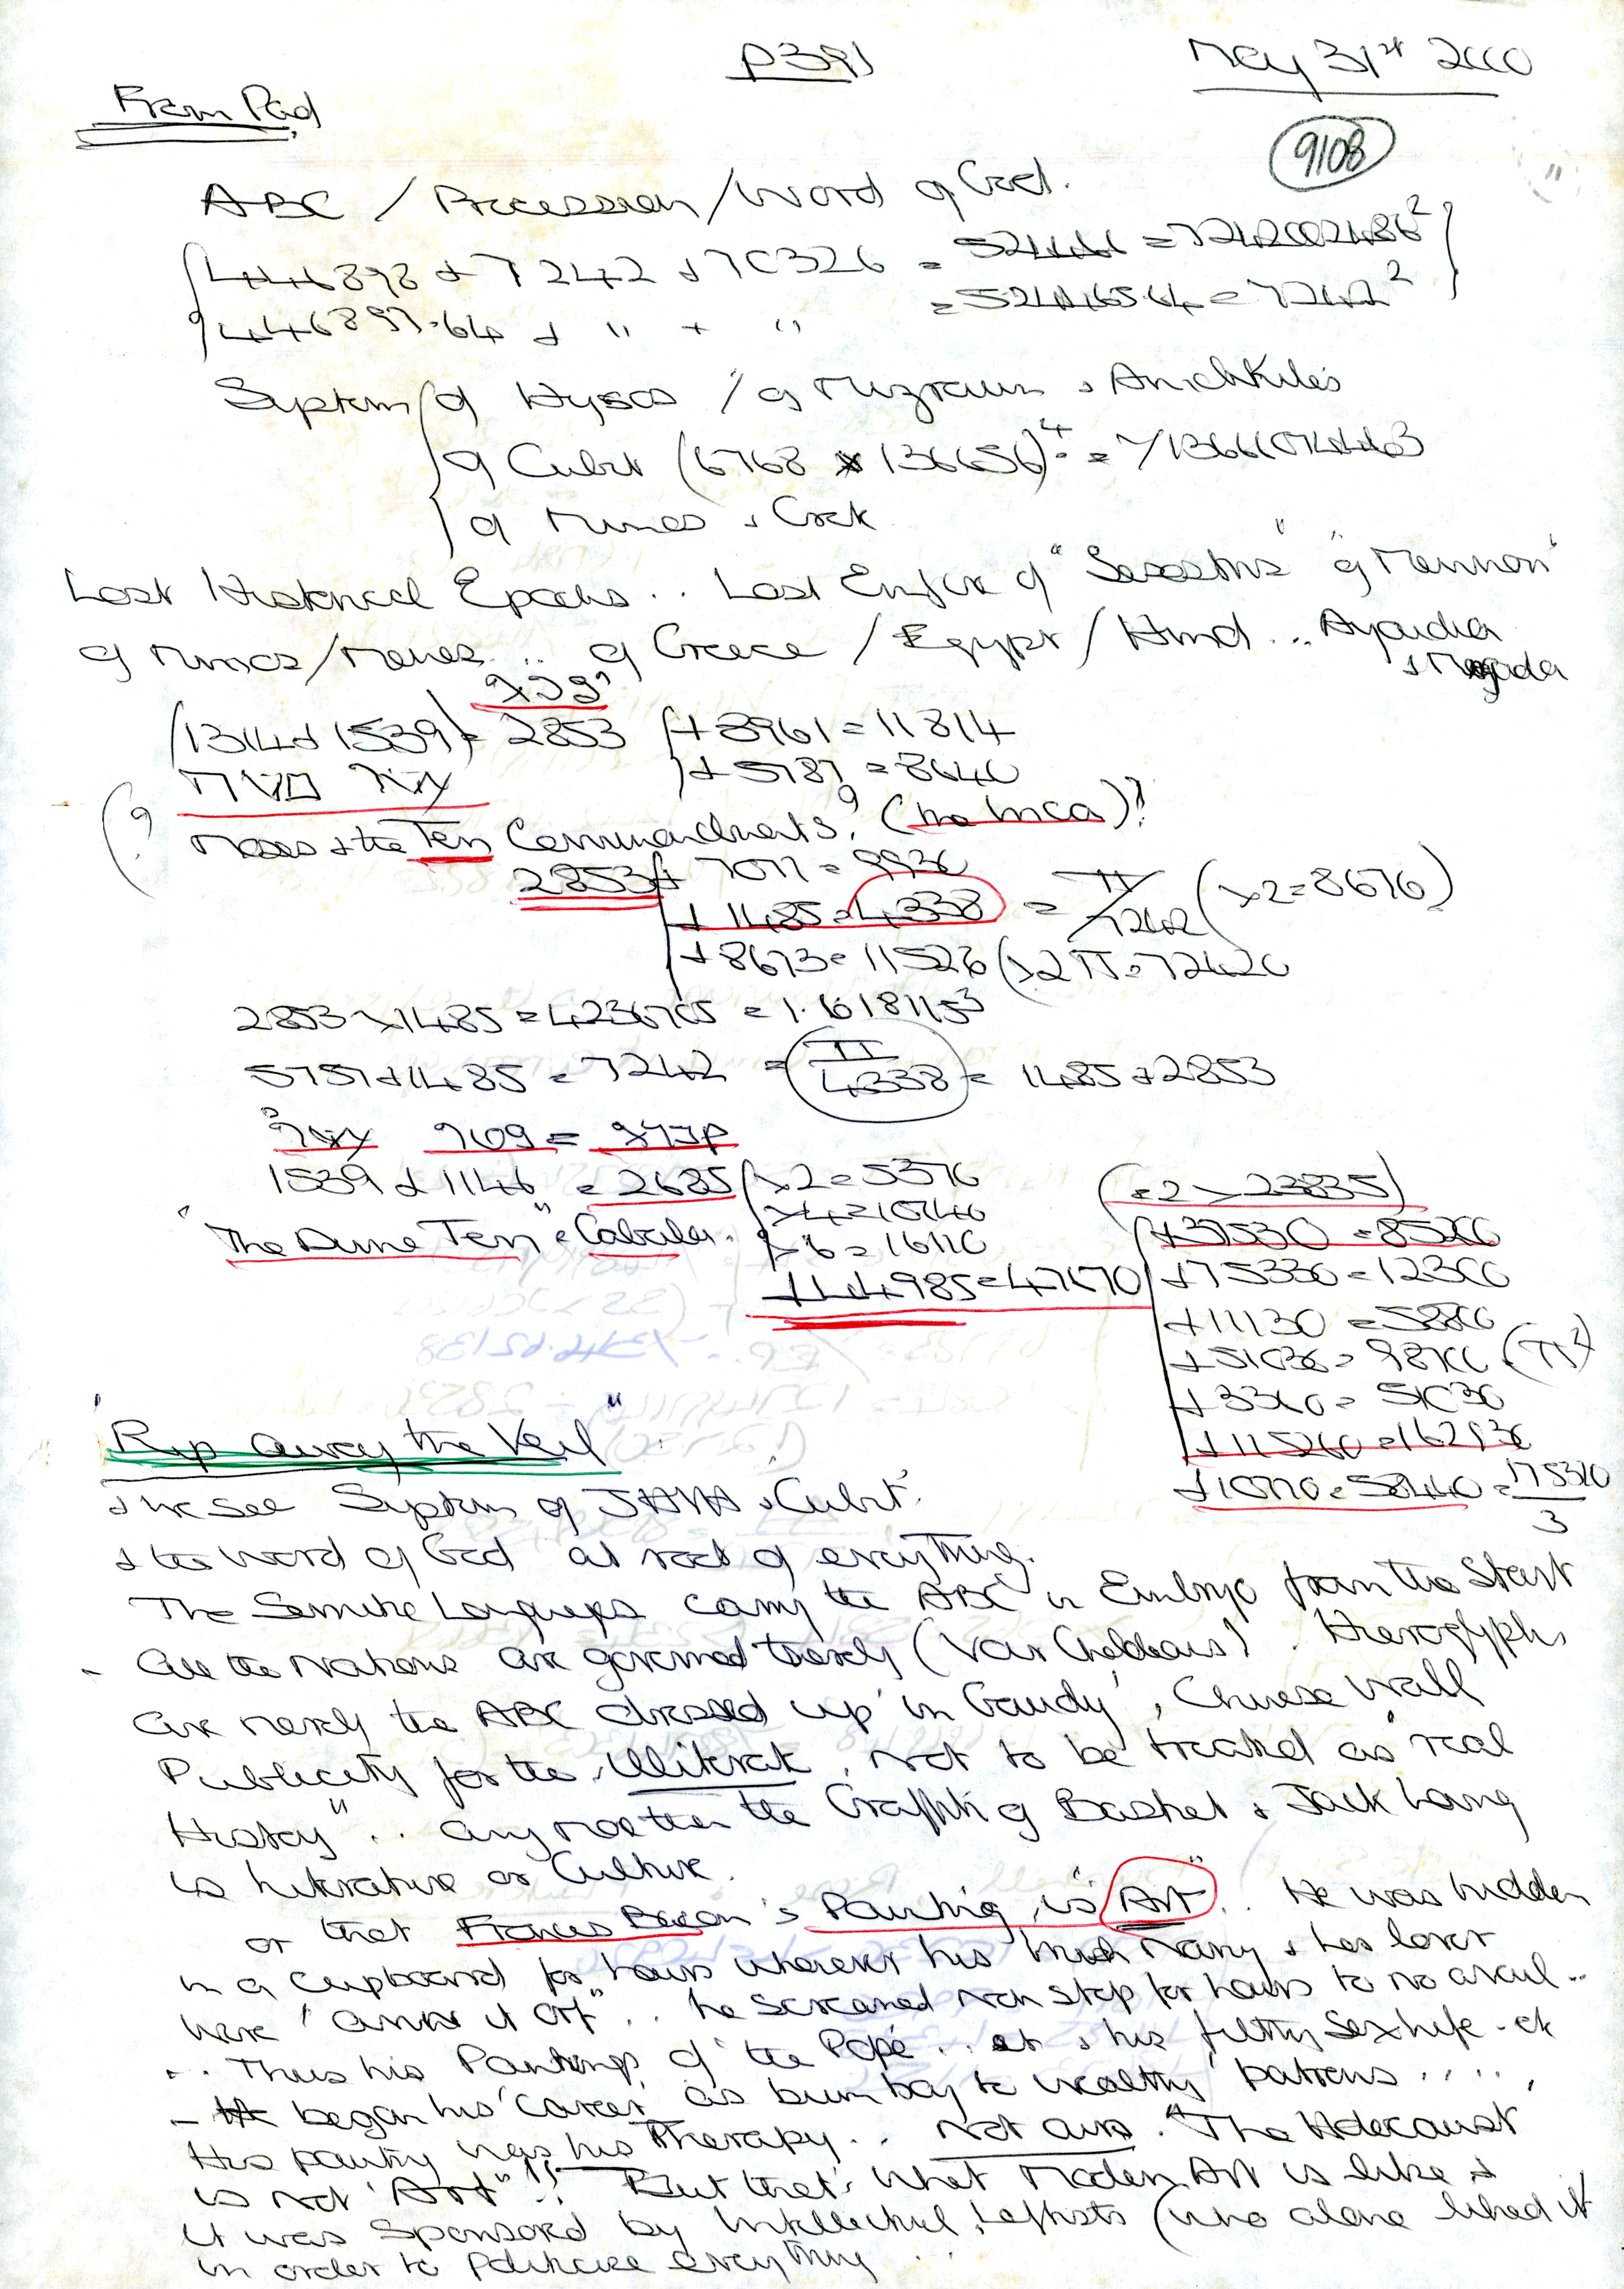 P391
May 31st 2000
From Pad
9108
ABC / Precession / Word of God.
446898 + 7242 + 70326 = 524466 = 724.2002486²
446897.64 + " + " = 524465.64 = 724.2²
System of Hyksos / of Mizraim &
of Cubit (6768 x 136656)
of Minos &
Lost Historical Epochs .. Lost Empire of "Sesostris" "of Memnon"
of Minos/Menes .. of Greece / Egypt / Hind ..
(1314 + 1539) = 2853 + 8961 = 11814
+ 5787 = 8640
Moses & the Ten Commandments? (the Inca)?
2853 + 7077 = 9930
+ 1485 = 4338 = π/7242 (x2 = 8676)
+ 8673 = 11526 (x2π = 72420
2853 x 1485 = 4236705 = 1.618115³
5757 + 1485 = 7242 = π/4338 = 1485 + 2853
1539 + 1146 = 2685 x2 = 5370
x4 = 10740
x6 = 16110
+ 44985 = 47670
"The Divine Ten" =
(= 2 x 23835)
+ 37530 = 85200
+ 75330 = 12300
+ 11130 = 58800
+ 51030 = 98700 (π²)
+ 3360 = 51030
+ 115260 = 162930
+ 10770 = 58440 = 175320/3
"Rip away the Veil"
& we see System of JAVA & Cubit'
& the Word of God at root of everything.
The Semitic Languages carry the ABC in Embryo from the Start
- All the Nations are governed thereby (Var Chaldeans). Hieroglyphs
are merely the ABC dressed up 'in Gaudy', Chinese Wall
Publicity for the illiterate, not to be treated as "real
History" .. any more than the Graffiti of Basket & Jack Lang
is literature or Culture.
or that Francis Bacon's Painting is "Art" .. He was hidden
in a cupboard for hours whenever his Nanny & her lover
were .. he screamed non stop for hours to no avail ..
.. Thus his Paintings of the Pope .. & his filthy Sex life - etc
- began his 'career' as bum boy to wealthy patrons .....
His painting was his Therapy .. Not ours. "The Holocaust
is not 'Art'"!! But that's what Modern Art is like &
it was sponsored by Intellectual Leftists (who alone liked it
in order to Politicise everything ..